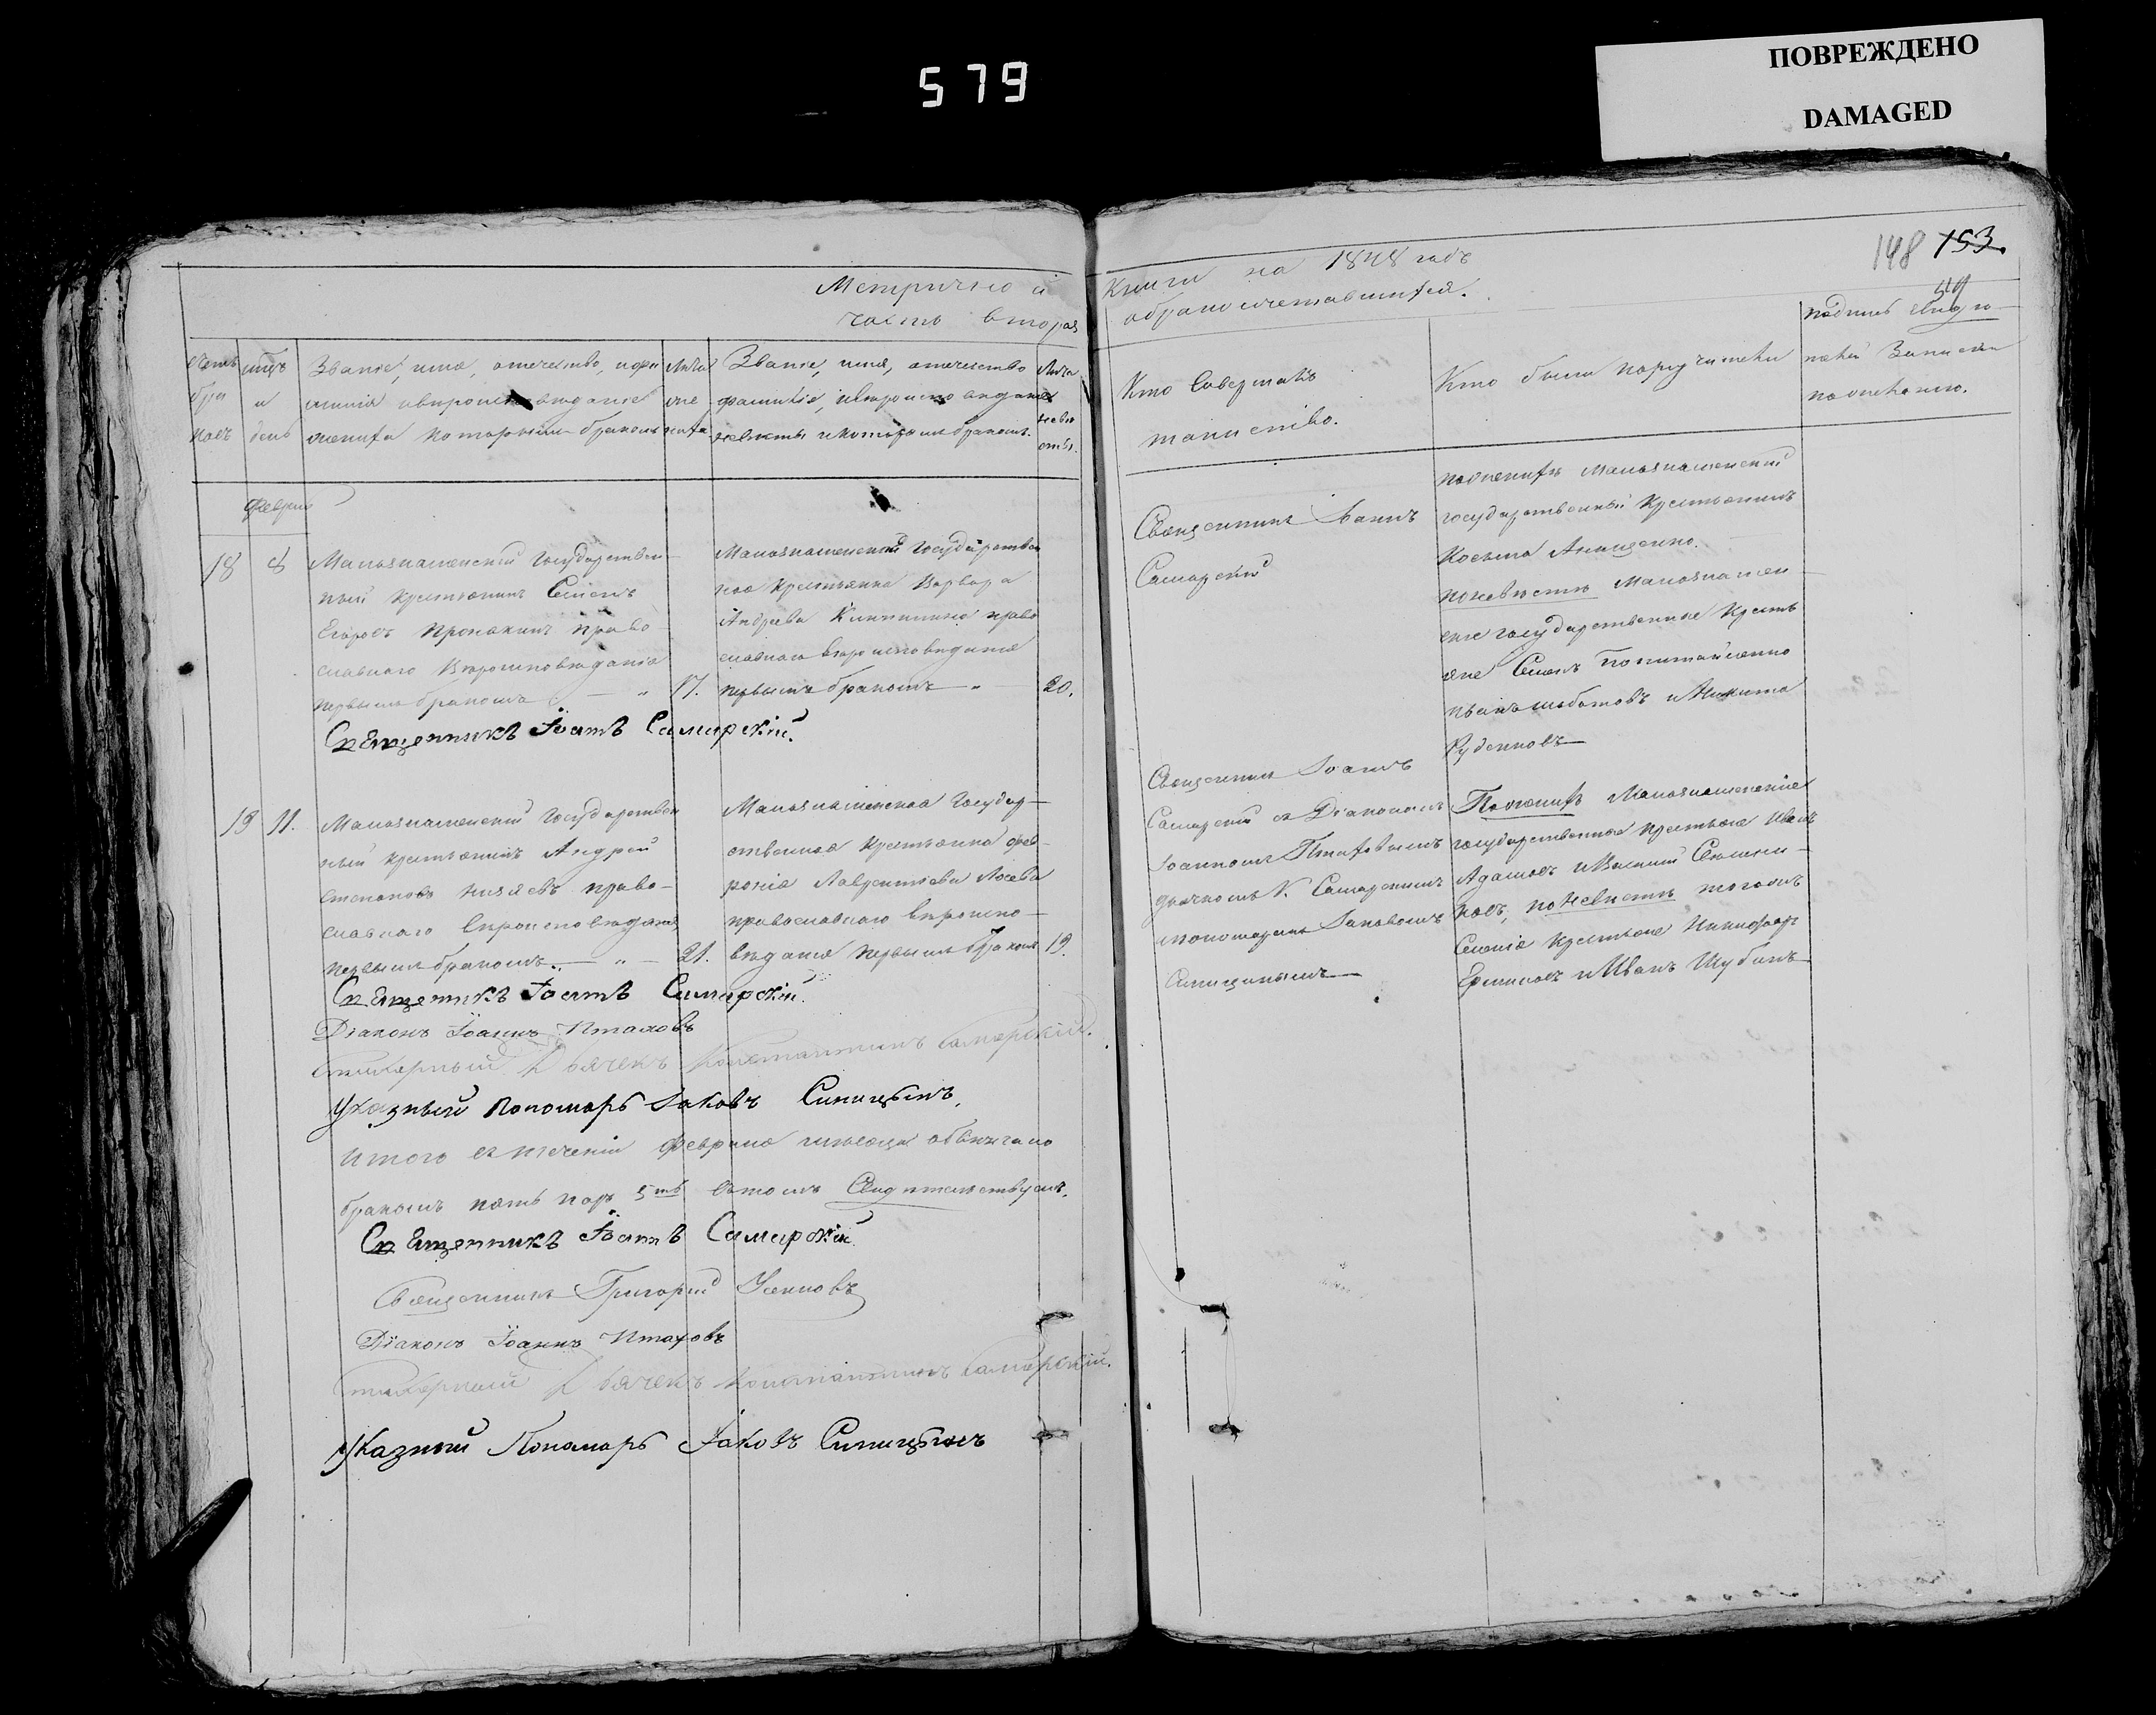 579
ПОВРЕЖДЕНО
DAMAGED
148 153.
Метрической
часть вторая
Книги на 1848 годъ
о бракосочетавшихся.
Счетъ браковъ
мѣсяцъ и день
Званіе, имя, отечество, и фа
милія и вѣроисповѣданіе
жениха которымъ бракомъ
Лѣта
же
ниха
Званіе, имя, отечество
фамилія, и вѣроисповѣданіе
невѣсты и которымъ бракомъ.
Лѣта
невѣ
сты.
Кто совершалъ
таинство.
Кто были поручители
подпись свидѣ
телей записи
по желанію.
Февраль
18 8
Малознаменский Государствен
ный крестьянинъ Семенъ
Егоровъ Пронякинъ право
славнаго вѣроисповѣданія
первымъ бракомъ — „ 17.
Малознаменский Государствен
ная крестьянка Варвара
Андреева православ
славнаго вѣроисповѣданія
первымъ бракомъ — „ 20.
Священникъ Іоаннъ
Самарский
по женихѣ Малознаменский
государственный крестьянинъ
Косьма Анищенко.
по невѣстѣ Малознамен
ские государственные кресть
яне Семенъ
и Никита
Руденковъ
Священникъ Іоаннъ Самарскій.
19 11.
Малознаменский Государствен
ный крестьянинъ Андрей
Степановъ Низяевъ право—
славнаго вѣроисповѣданія
первымъ бракомъ.— „ — 21.
Малознаменская Государ—
ственная крестьянка Фев—
ронія Лаврентіева Лосева
православнаго вѣроиспо—
вѣданія первымъ бракомъ 19.
Священникъ Іоаннъ
Самарский съ Діакономъ
Іоанномъ Птаховымъ
дьячкомъ К. Самарскимъ
и пономаремъ Іаковомъ
Синицынымъ—
По женихѣ Малознаменскіе
государственные крестьяне Иванъ
Адамовъ и Василий Семени—
ковъ, по невѣстѣ тогожъ
Селенія крестьяне Никифоръ
Ермиловъ и Иванъ Шубинъ
Священникъ Іоаннъ Самарскій.
Діаконъ Іоаннъ Птаховъ
Стихарный Дьячекъ Константинъ Самарскій.
Указный Пономарь Іаковъ Синицынъ.
Итого въ теченіи Февраля мѣсяца обвѣнчано
бракомъ пять паръ 5ть въ томъ свидѣтельствуемъ.
Священникъ Іоаннъ Самарскій.
Священникъ Григорий Усенковъ
Діаконъ Іоаннъ Птаховъ
Стихарный Дьячекъ Константинъ Самарскій.
Указный Пономарь Іаковъ Синицынъ